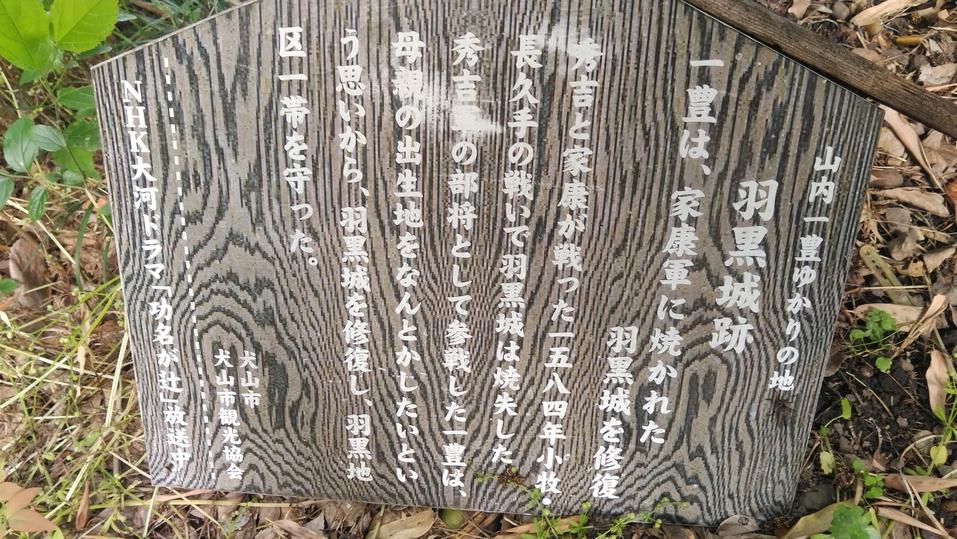 山内一豊ゆかりの地
羽黒城跡
一豊は、家康軍に焼かれた
羽黒城を修復
秀吉と家康が戦った一五八四年小牧・
長久手の戦いで羽黒城は焼失した
秀吉の部将として参戦した一豊は、
母親の出生地をなんとかしたいとい
う思いから、羽黒城を修復し、羽黒地
区一帯を守った。
犬山市
犬山市観光協会
NHK大河ドラマ「功名が辻」放送中